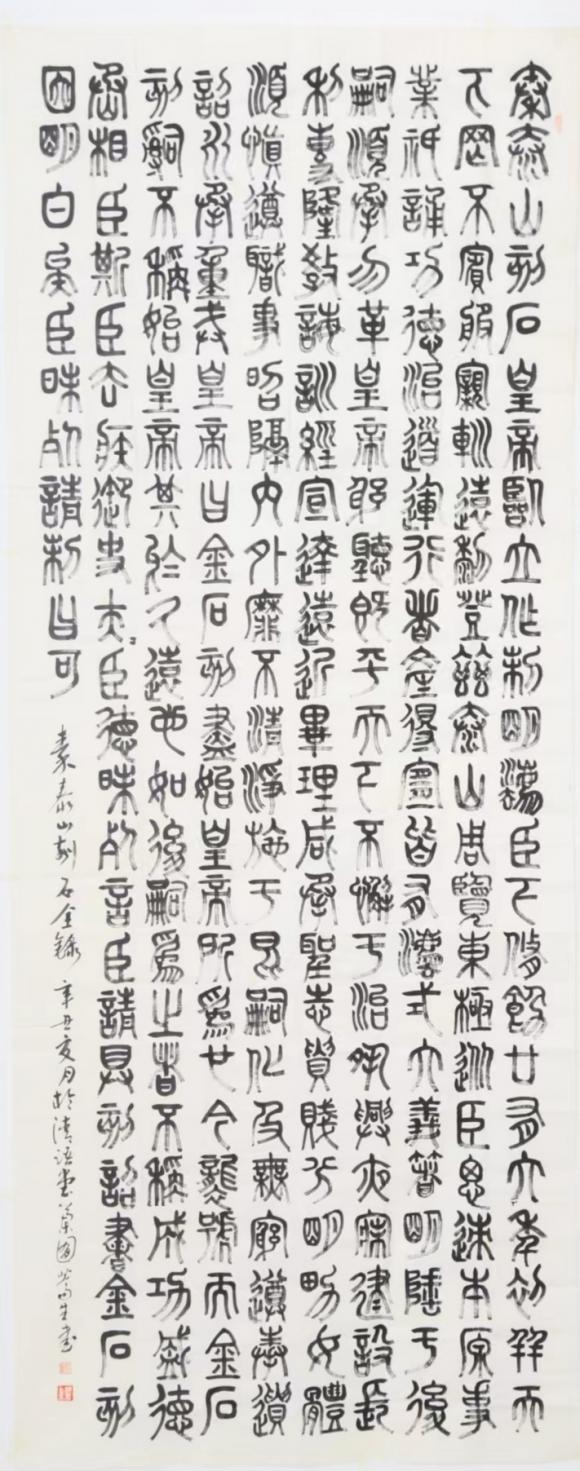 秦泰山刻石皇帝臨立作制明灋臣下修飭廿有六年初并天
下罔不賓服寴巡遠黎登茲泰山周覽東極從臣思迹本原事
業祗誦功德治道運行者產得宜皆有灋式大義著明陲于後
嗣順承勿革皇帝躬聽既平天下不懈于治夙興夜寐建設長
利專隆教誨訓經宣達遠近畢理咸承聖志貴賤分明男女體
順慎遵職事昭隔內外靡不清淨施于昆嗣化及無窮遵奉遺
詔永承重戒皇帝曰金石刻盡始皇帝所爲也今襲號而金石
刻辭不稱始皇帝其於久遠也如後嗣爲之者不稱成功盛德
丞相臣斯臣去疾御史夫=臣德昧死言臣請具刻詔書金石刻
因明白矣臣昧死請制曰可
秦泰山刻石全錄 辛丑夏月於清語堂 國 生書